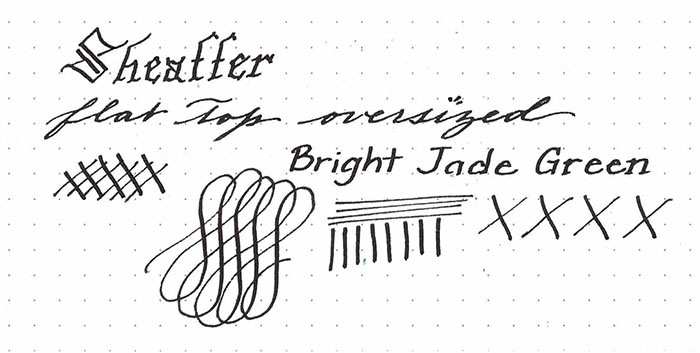 Sheaffer
flat Top oversized
Bright Jade Green
X X X X